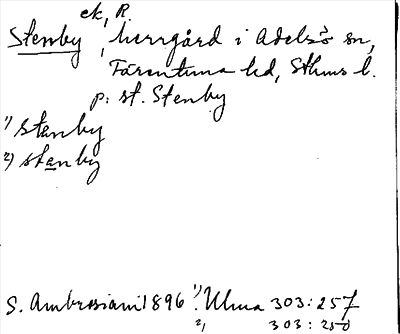 ek, R.
Stenby, herrgård i Adelsö sn,
Färentuna hd, Sthms l.
p: st. Stenby
1) stenby
2) stanby
S. Ambrosiani 1896 1) Ulma 303:257
2) 303:250